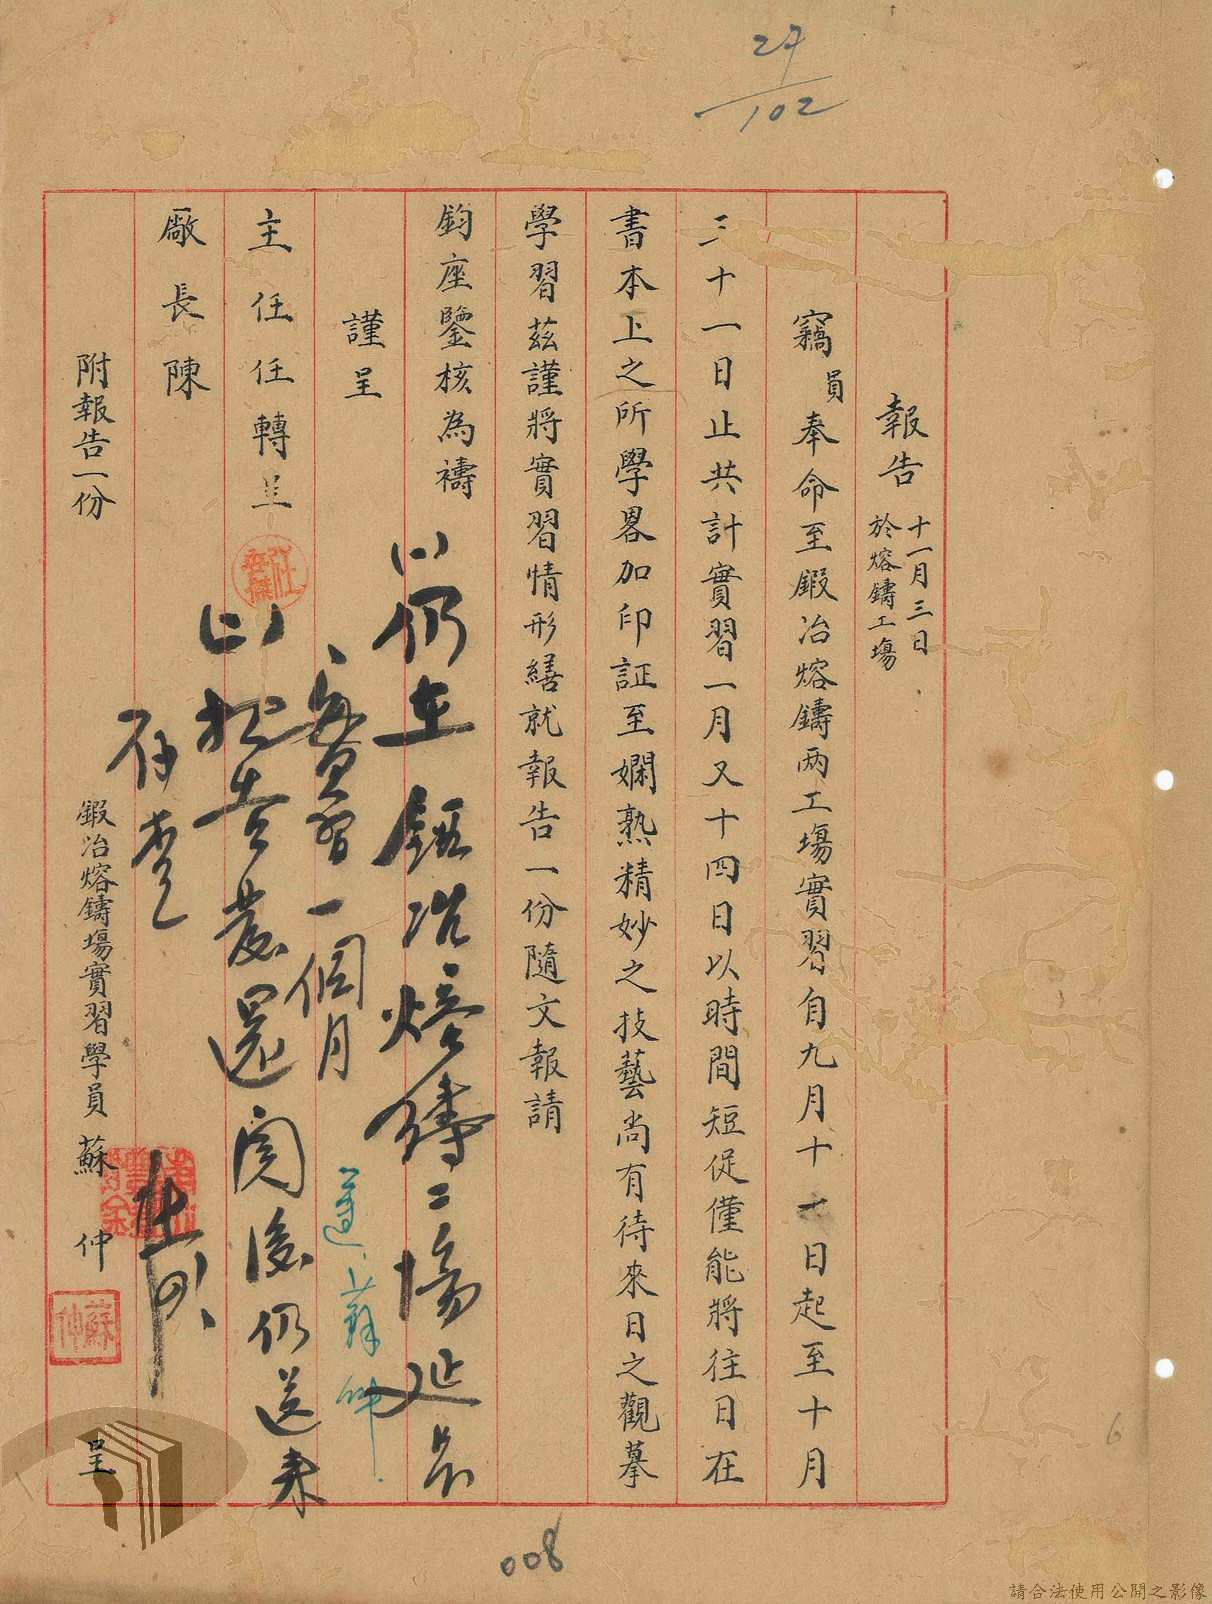 27
102
報告
十一月三日
於熔鑄工場
竊員奉命至鍛冶熔鑄兩工塲實習自九月十一日起至十月
三十一日止共計實習一月又十四日以時間短促僅能將往日在
書本上之所學畧加印証至嫻熟精妙之技藝尚有待來日之觀摹
學習茲謹將實習情形繕就報告一份隨文報請
鈞座鑒核為禱
謹呈
主任任轉呈
廠長陳
附報告一份
鍛冶熔鑄塲實習學員蘇仲呈
蘇仲
仍在鍛冶熔鑄二場延長
實習一個月
報告發還閱後仍送來
遵 蘇仲
008
6
請合法使用公開之影像